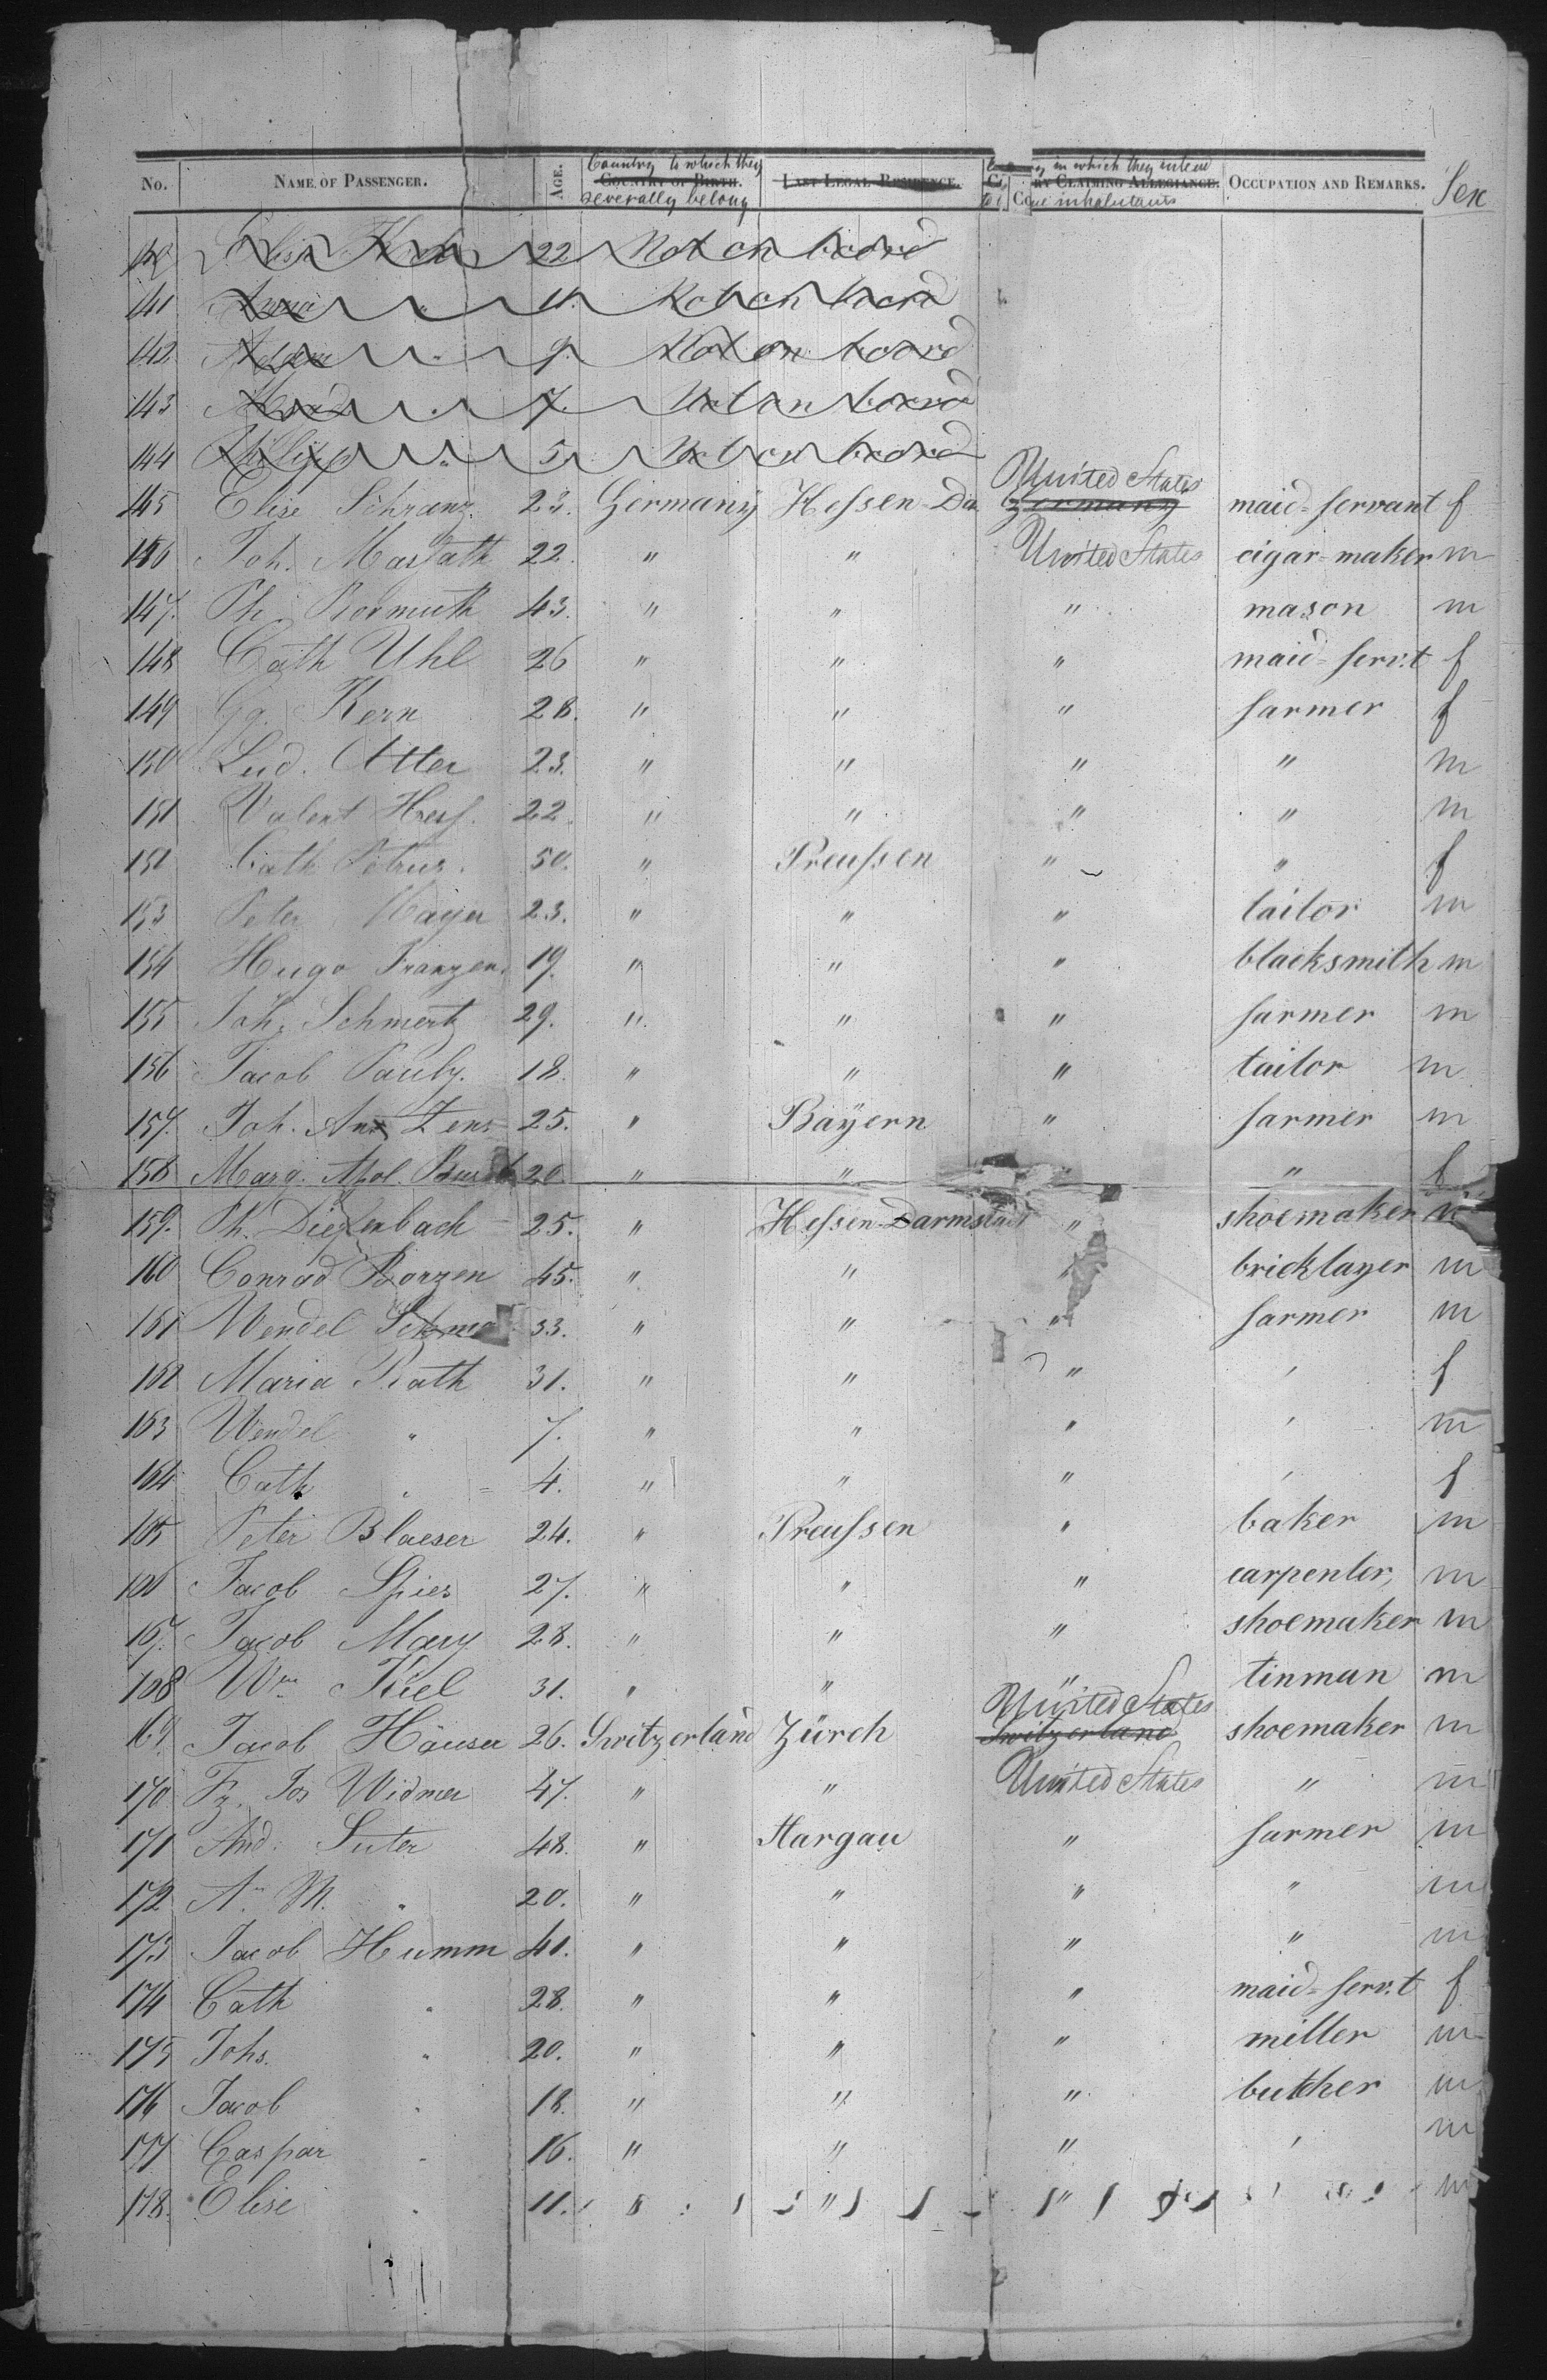 No. NAME OF PASSENGER. AGE. Country to which they severally belong COUNTRY OF BIRTH. LAST LEGAL RESIDENCE. in which they intend CLAIMING ALLEGIANCE. inhabitants OCCUPATION AND REMARKS. Sex
140 22 Not on board
141 Anna " 11. Not on board
142 " 9. Not on board
143 " 7. Not on board
144 Philipp " 5. Not on board
145 Elise Schranz 23. Germany Hessen-Da United States Germany maid-servant f
146 Joh. 22. " " United States cigar-maker m
147. Ph. 43. " " " mason m
148 Cath Uhl 26 " " " maid-serv.t f
149 Gg. Kern 28. " " " farmer f
150 Lud. 23. " " " " m
151 Valent Hess. 22. " " " " m
151 Cath Petrus. 50. " Preussen " " f
153 Peter Mayer 23. " " " tailor m
154 Hugo Franzen. 19. " " " blacksmith m
155 Joh. Schmertz 29. " " " farmer m
156 Jacob Pauly. 18. " " " tailor m
157. Joh. Ant Zens 25. " Bayern " farmer m
158 Marg. Apol. 20 " " " " f
159. Ph. Diefenbach 25. " Hessen-Darmstadt " shoemaker m
160 Conrad 45. " " " bricklayer m
161 Wendel 33. " " " farmer m
162 Maria Rath 31. " " " ' f
163 Wendel " 7. " " " ' m
164 Cath " 4. " " " ' f
165 Peter Blaeser 24. " Preussen " baker m
166 Jacob Spies 27. " " " carpenter, m
167. Jacob Mary 28. " " " shoemaker m
168 Wm Kiel 31. " " " tinman m
169 Jacob Häuser 26. Switzerland Zürch United States Switzerland shoemaker m
170 Fz. Jos Widmer 47. " " United States " m
171 And. Suter 48. " Aargau " farmer m
172 A. M. " 20. " " " " m
173 Jacob Humm 41. " " " " m
174 Cath " 28. " " " maid-serv.t f
175 Johs. " 20. " " " miller m
176 Jacob " 18. " " " butcher m
177 Caspar " 16. " " " ' m
178. Elise " 11. " " " m